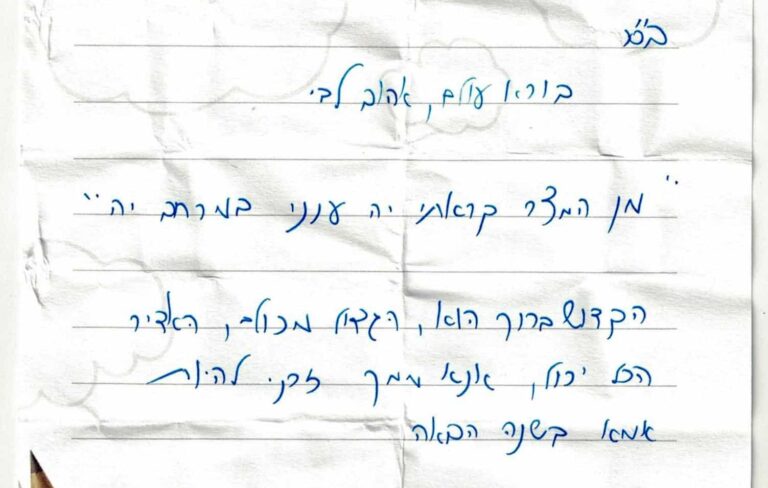 בס"ד
בורא עולם, אהוב לבי.
"מן המצר קראתי יה ענני במרחב יה"
הקדוש ברוך הוא, הגדול מכולם, האדיר
הכל יכול, אנא ממך זכני להיות
אמא בשנה הבאה